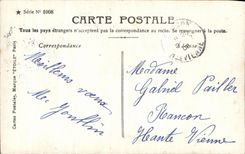 ★ Série Nº 5908
CARTE POSTALE
Tous les pays étrangers n'acceptent pas la correspondance au recto. Se renseigner à la poste.
Correspondance
Meilleurs vœux
Cartes Postales, Marque "ÉTOILE", Paris
Madame
Gabriel Pailler
Rancon
Haute Vienne